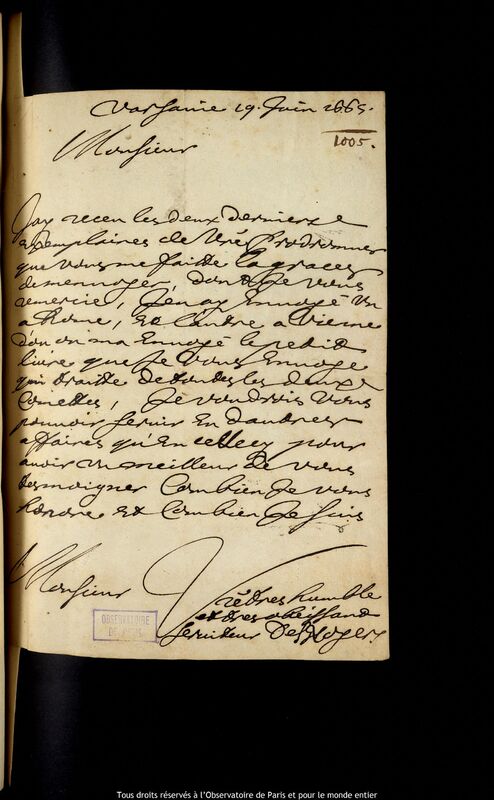 Varsavie 19. Juin 1665.
1005.
Monsieur
J'ay receu les deux derniers
exemplaires de Vre Prodromus
que vous me faitte la graces
de mennoyer, dont Je vous
remercie, J'en ay Ennoyé un
a Rome, et l'autre a Vienne
d'ou on ma Ennoyé le petit
liure que Je vous Ennoye
qui traitte de toutes les deux
Comettes, Je voudrois vous
pouuoir seruir En d'autres
affaires qu'En celles cy pour
auoir un meilleur de vous
tesmoigner Combien Je vous
honore et Combien Je suis
Monsieur
Vre tres humble
et tres obeissant
seruiteur Des Noyers
OBSERVATOIRE
DE PARIS
Tous droits réservés à l'Observatoire de Paris et pour le monde entier